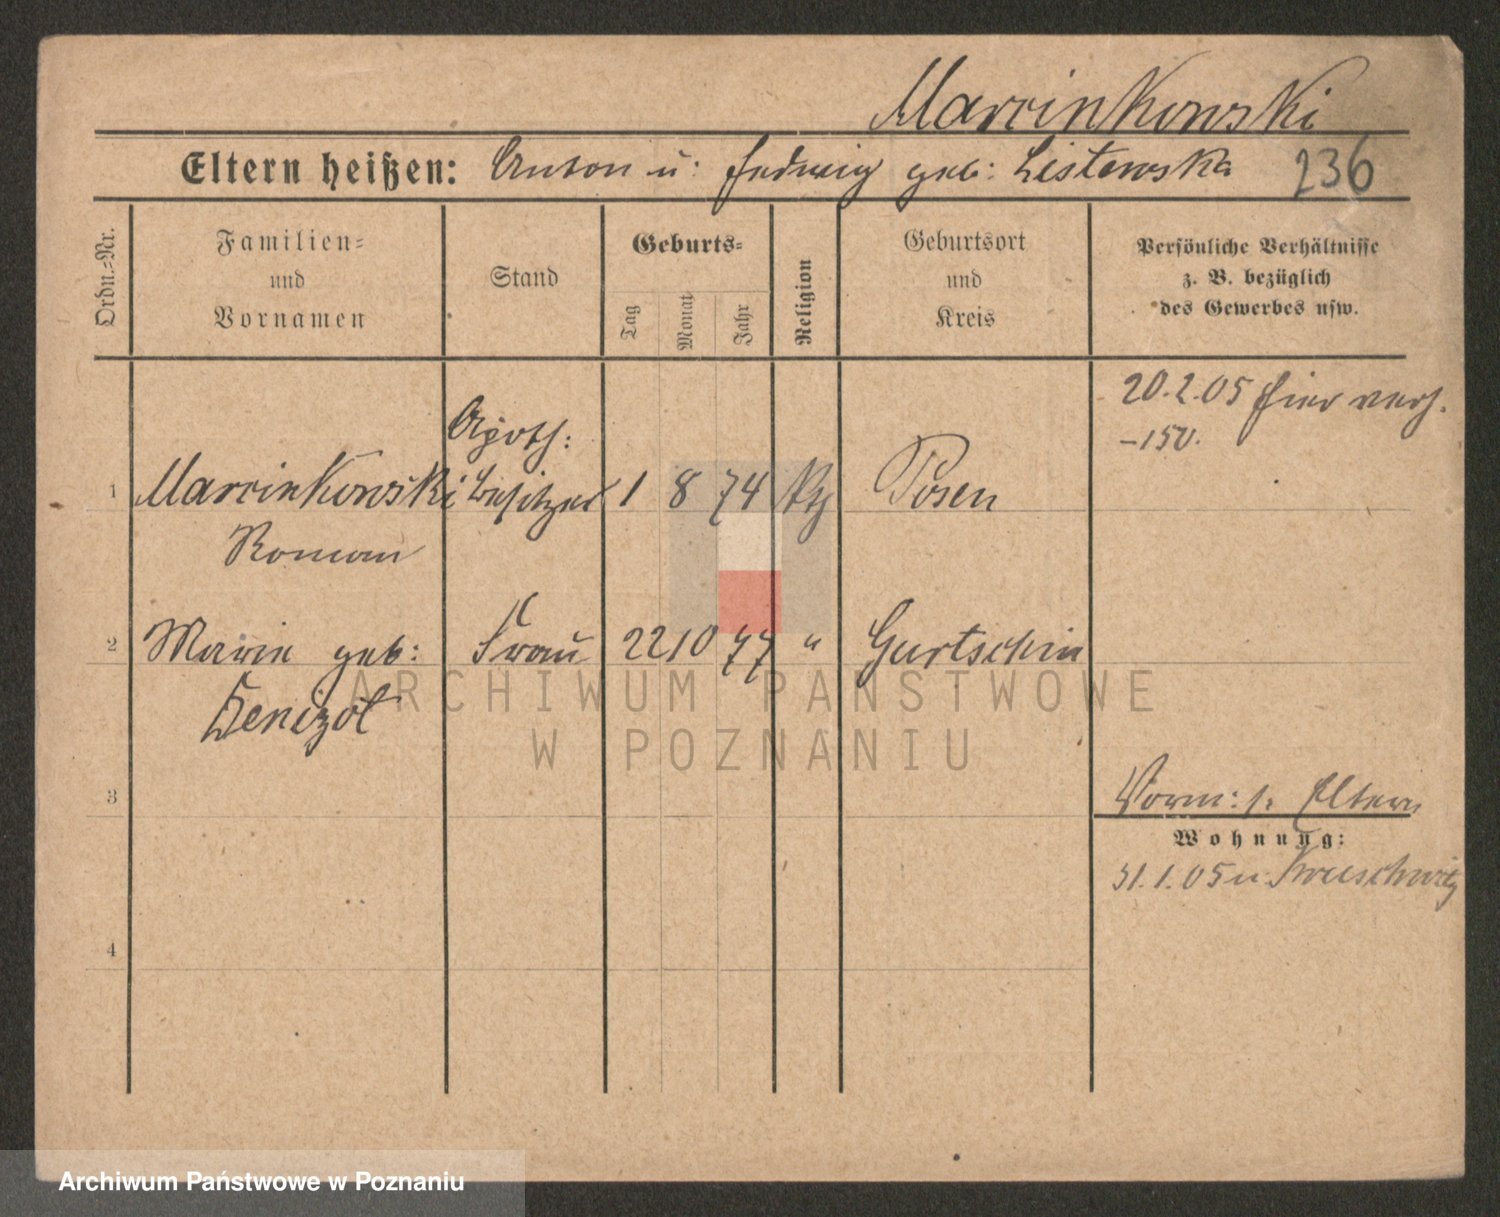 Marcinkowski
Eltern heißen: Anton u: Hedwig geb: Listewska 236
Ordn.-Nr.
Familien-
und
Vornamen
Stand
Geburts-
Tag
Monat
Jahr
Religion
Geburtsort
und
Kreis
Persönliche Verhältnisse
z. B. bezüglich
des Gewerbes usw.
20.2.05 hier verh.
-150.
Apoth:
1 Marcinkowski Besitzer 1 8 74 kth Posen
Roman
2 Marie geb: Frau 22 10 77 " Gurtschin
Denizot
3
Vorm: s. Eltern
Wohnung:
31.1.05 n. Kruschwitz
4
ARCHIWUM PAŃSTWOWE
W POZNANIU
Archiwum Państwowe w Poznaniu